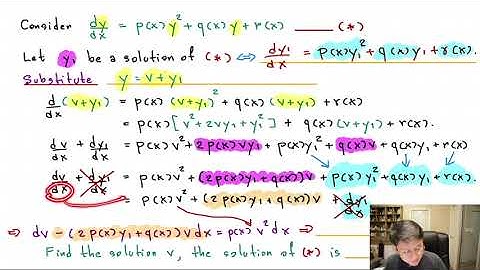 Consider dy/dx = p(x) y² + q(x) y + r(x) ——— (*)
Let y₁ be a solution of (*) ⇔ dy₁/dx = p(x)y₁² + q(x) y₁ + r(x).
Substitute y = v + y₁
d/dx (v + y₁) = p(x) (v + y₁)² + q(x) (v + y₁) + r(x)
= p(x) [v² + 2vy₁ + y₁²] + q(x) (v + y₁) + r(x).
dv/dx + dy₁/dx = p(x) v² + 2p(x) vy₁ + p(x) y₁² + q(x) v + q(x) y₁ + r(x)
dv/dx + dy₁/dx = p(x) v² + (2p(x) y₁ + q(x)) v + p(x) y₁² + q(x) y₁ + r(x).
= p(x) v² + (2p(x) y₁ + q(x)) v + dy₁/dx
⇒ dv − (2p(x) y₁ + q(x)) v dx = p(x) v² dx ⇒
Find the solution v, the solution of (*) is